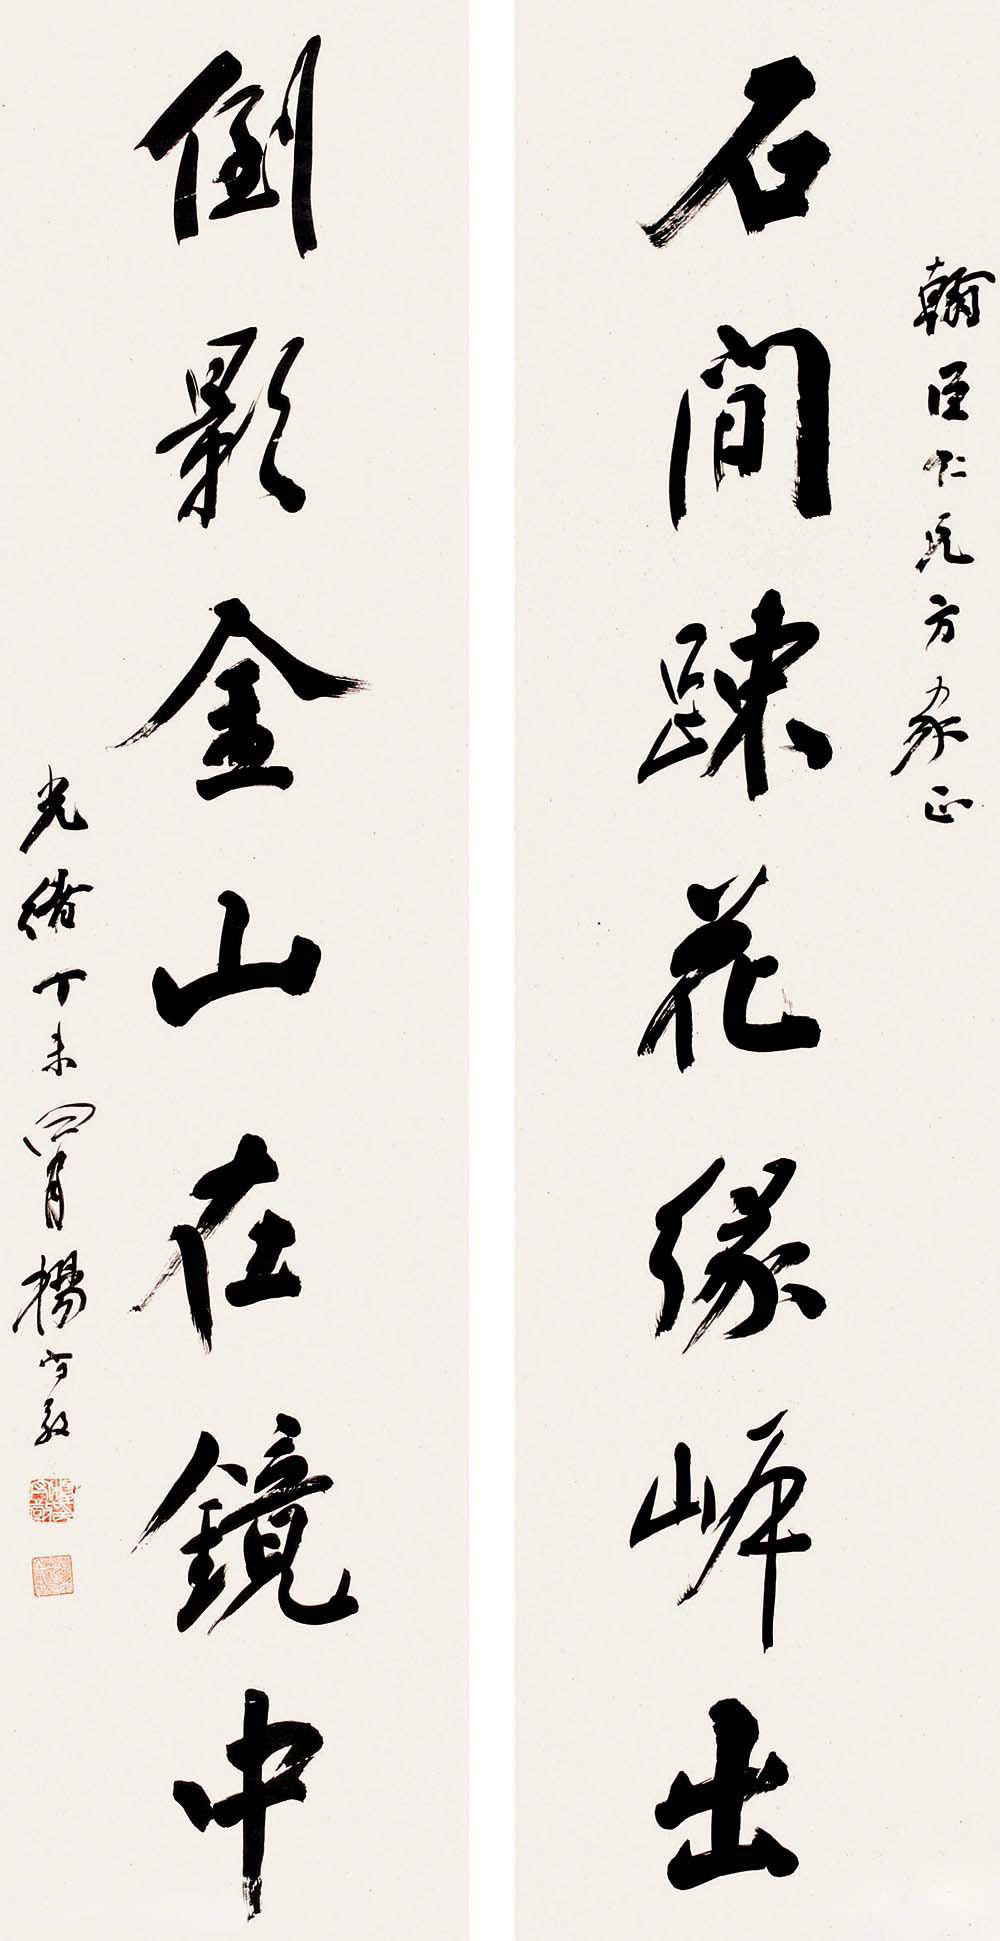 翰臣仁兄方家正
石間踈花緣㟁出
倒影金山在鏡中
光緒丁未四月楊守敬